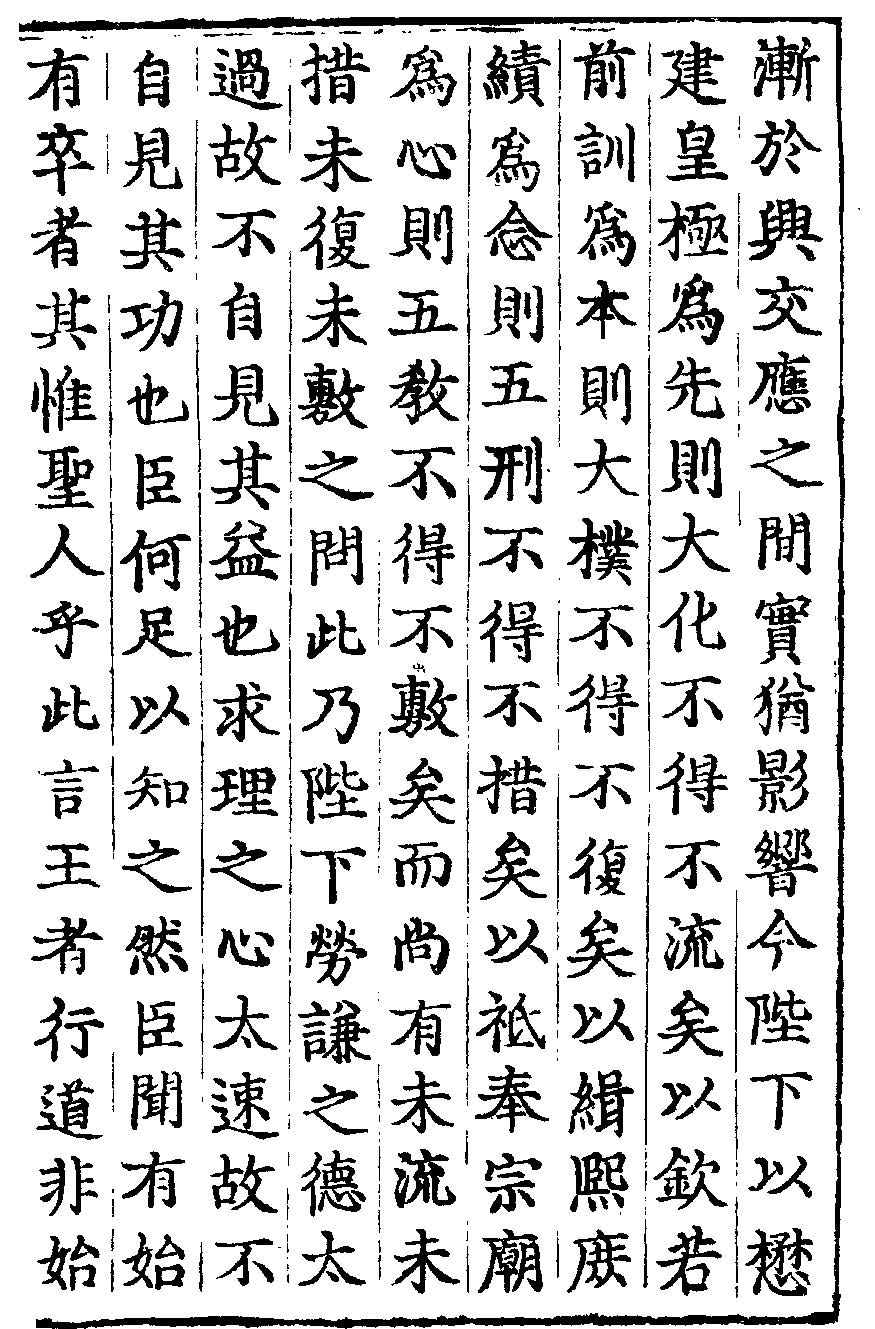 漸於興交應之間實猶影響今陛下以懋
建皇極爲先則大化不得不流矣以欽若
前訓爲本則大樸不得不復矣以緝熙庶
績爲念則五刑不得不措矣以祗奉宗廟
爲心則五教不得不敷矣而尚有未流未
措未復未敷之問此乃陛下勞謙之德太
過故不自見其益也求理之心太速故不
自見其功也臣何足以知之然臣聞有始
有卒者其惟聖人乎此言王者行道非始